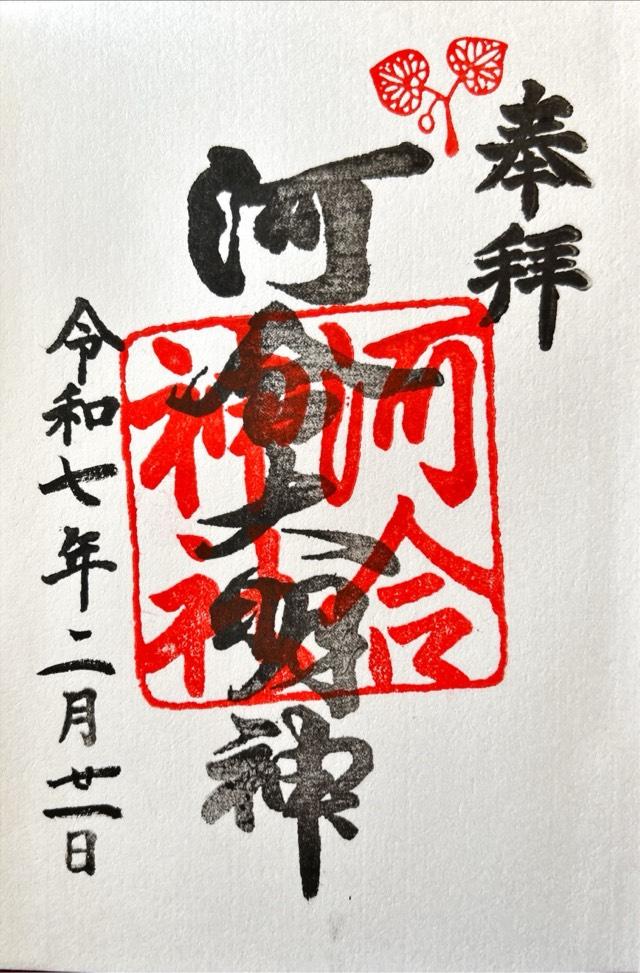 奉拝
河合大明神
河合
神社
令和七年二月廿一日